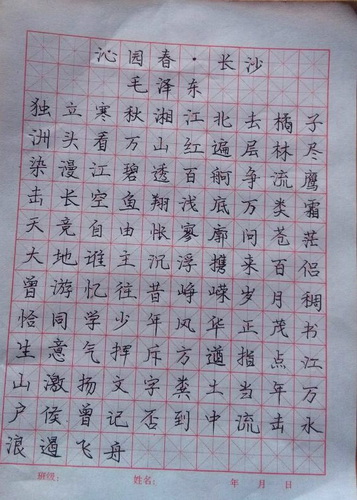 沁园春·长沙
毛泽东
独立寒秋湘江北去橘子
洲头看万山红遍层林尽
染漫江碧透百舸争流鹰
击长空鱼翔浅底万类霜
天竞自由怅寥廓问苍茫
大地谁主沉浮携来百侣
曾游忆往昔峥嵘岁月稠
恰同学少年风华正茂书
生意气挥斥方遒指点江
山激扬文字粪土当年万
户侯曾记否到中流击水
浪遏飞舟
班级: 姓名: 年 月 日